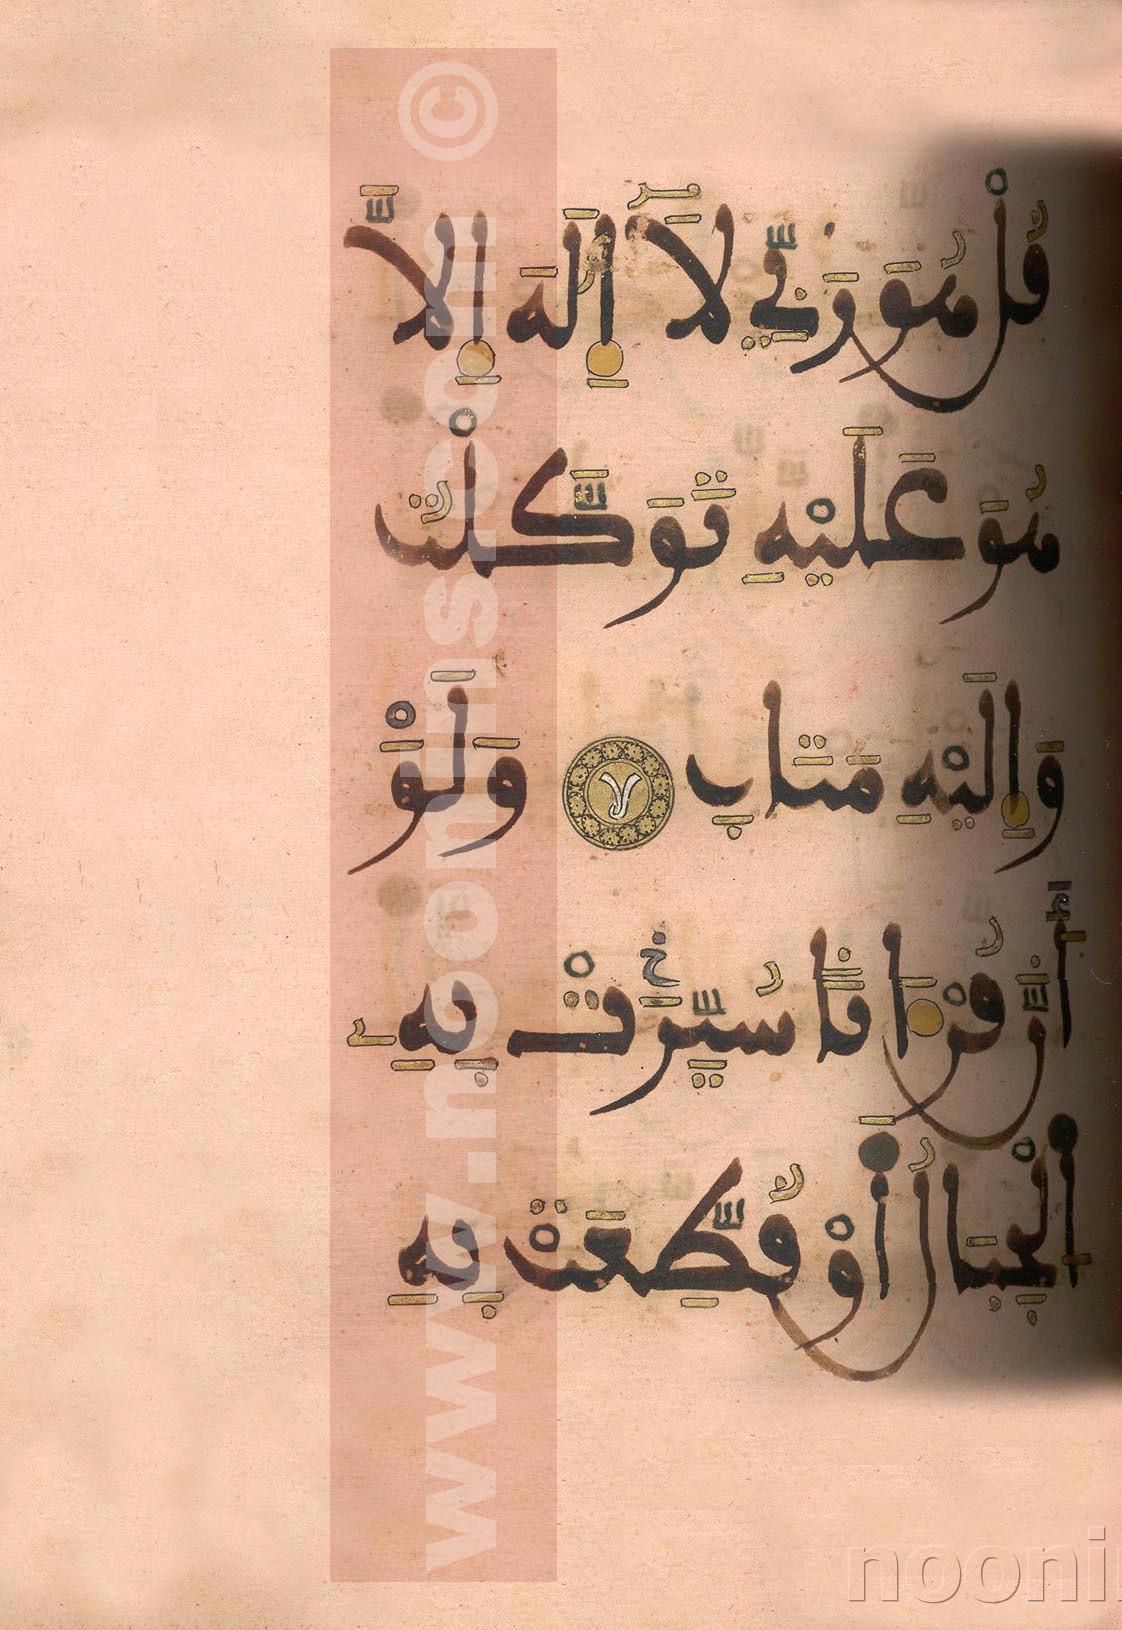 قُلْ هُوَ رَبِّي لَآ إِلَٰهَ إِلَّا
هُوَ عَلَيْهِ تَوَكَّلْتُ
وَإِلَيْهِ مَتَابِ وَلَوْ
أَنَّ قُرْءَانًا سُيِّرَتْ بِهِ
اَلْجِبَالُ أَوْ قُطِّعَتْ بِهِ
www.noonins.com ©
nooni